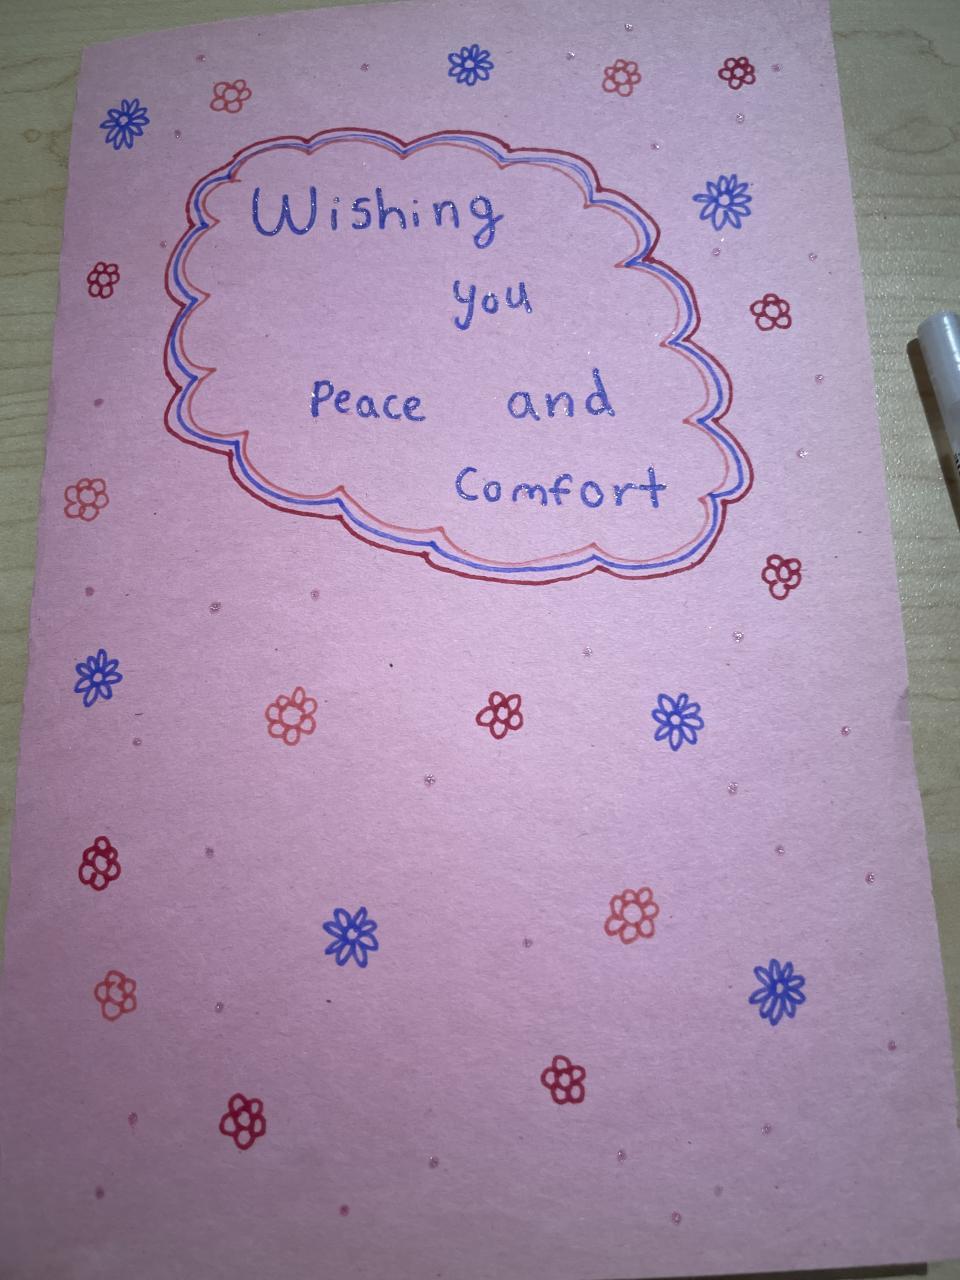 Wishing
you
Peace and
Comfort